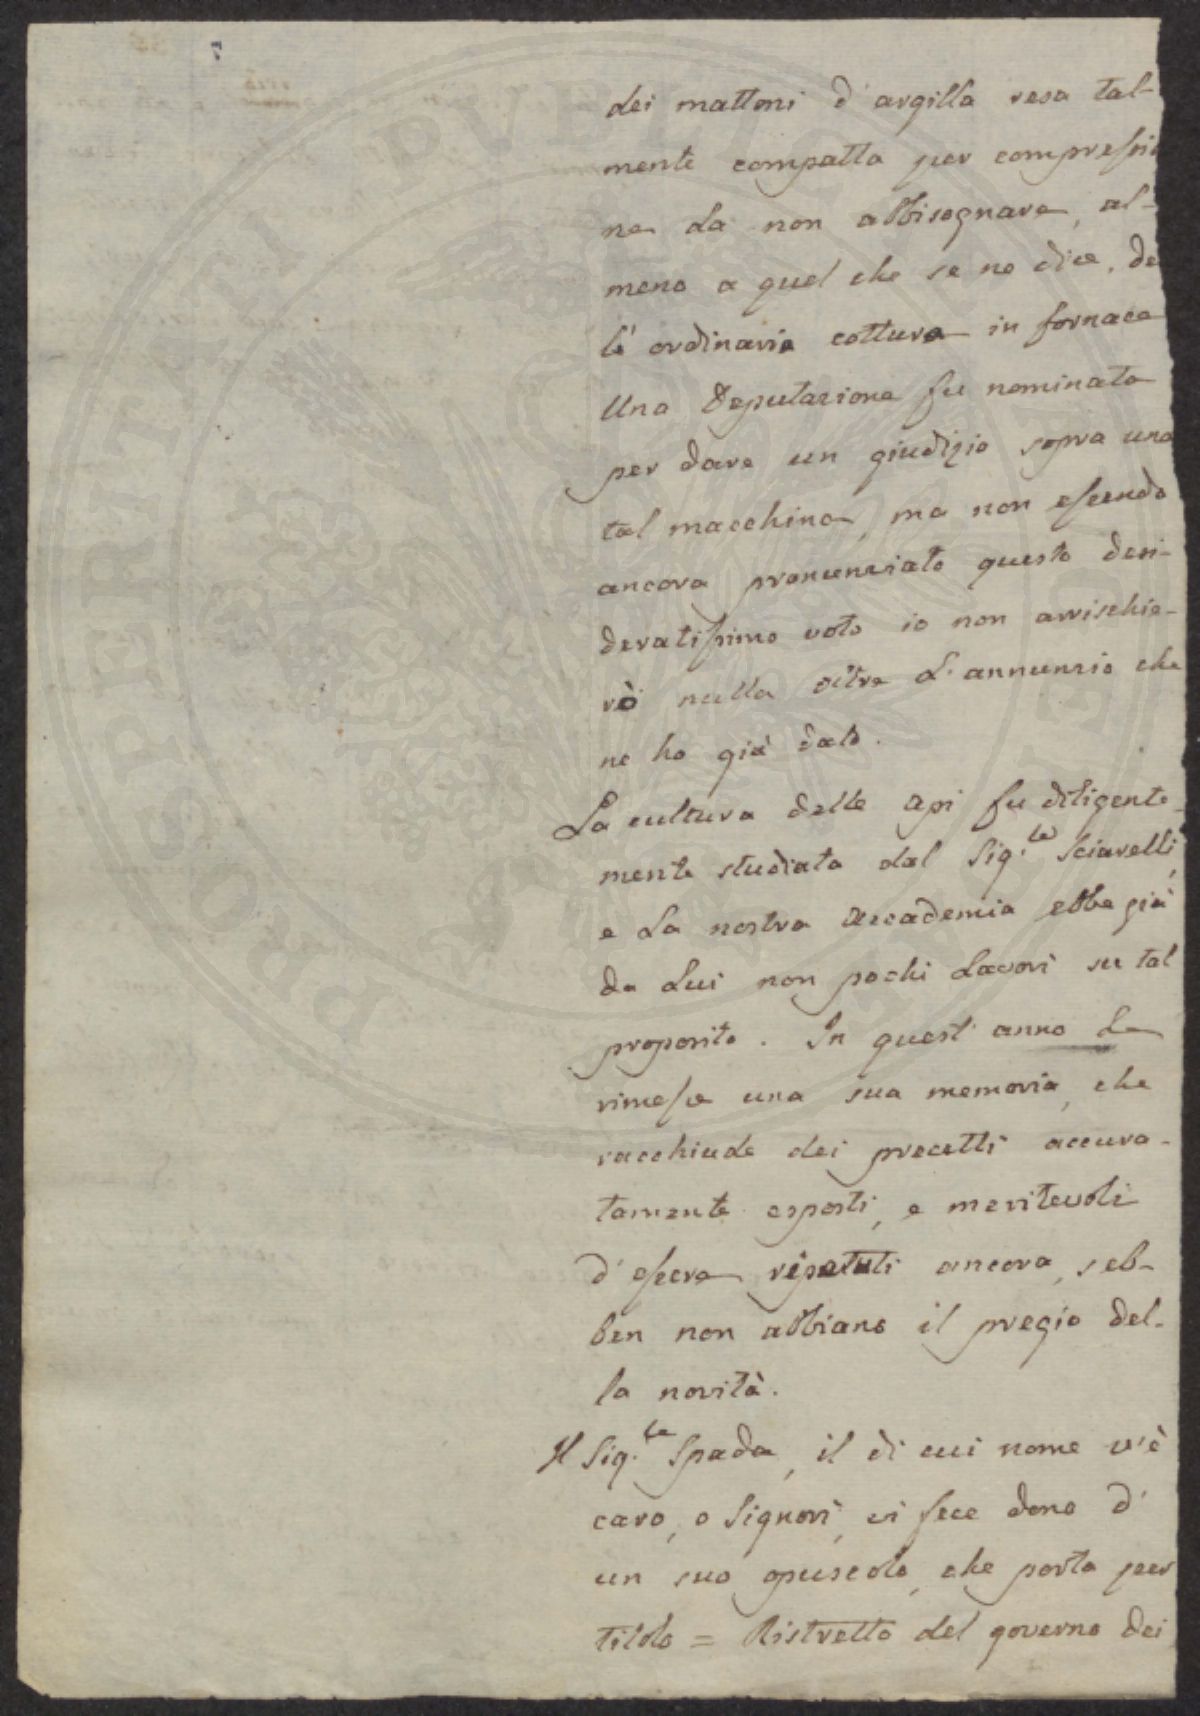 7
dei mattoni d'argilla resa tal-
mente compatta per compressio
ne da non abbisognare, al-
meno a quel che se ne dice, de
ll'ordinaria cottura in fornace
Una Deputazione fu nominata
per dare un giudizio sopra una
tal macchina, ma non essendo
ancora pronunziato questo desi-
deratissimo voto io non arrischie-
rò nulla oltre l'annunzio che
ne ho già dato.
La cultura delle api fu diligente-
mente studiata dal Sig.le Sciarelli,
e la nostra accademia ebbe già
da lui non pochi lavori su tal
proposito. In quest'anno le
rimesse una sua memoria, che
racchiude dei precetti accura-
tamente esposti, e meritevoli
d'essere ripetuti ancora, seb-
ben non abbiano il pregio del-
la novità.
Il Sig.le Spada, il di cui nome v'è
caro, o Signori, vi fece dono d'
un suo opuscolo, che porta per
titolo = Ristretto del governo dei